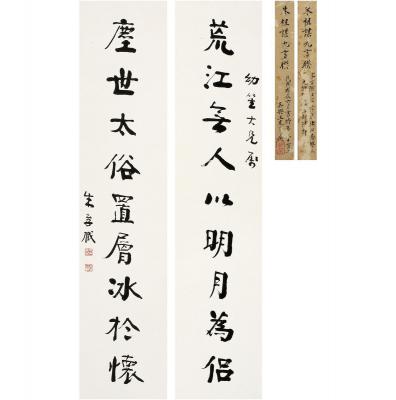 荒江無人以明月為侶
幼笙大兄屬
塵世太俗置層冰於懷
朱孝臧
朱祖謀九言聯
朱祖謀九言聯